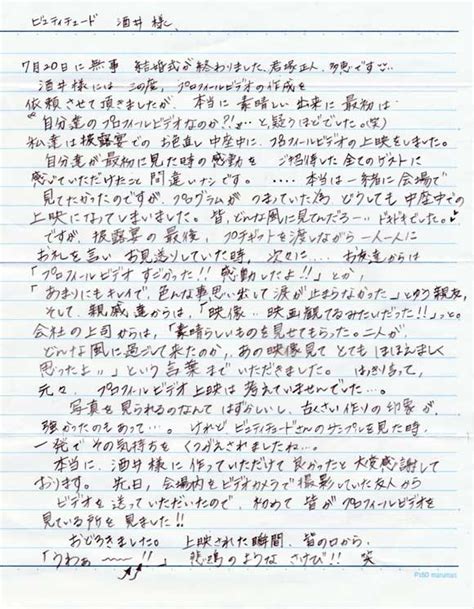 ビュティチュード 酒井様、
7月20日に無事 結婚式が終わりました、君塚正人、多恵です
酒井様には この度、プロフィールビデオの作成を
依頼させて頂きましたが、本当に素晴しい出来に最初は
"自分達のプロフィールビデオなのか?!"…と疑うほどでした。(笑)
私達は披露宴でのお色直し中座中に、プロフィールビデオの上映をしました。
自分達が最初に見た時の感動を ご招待した全てのゲストに
感じていただけたこと間違いナシです。 ‥‥本当は一緒に会場で
見てたかったのですが、プログラムがつまっていた為 どうしても中座中での
上映になってしまいました。皆、どんな風に見てんだろー‥ドキドキでした。
ですが、披露宴の最後、プチギットを渡しながら一人一人に
お礼を言い お見送りしていた時、次々に… お友達からは
「プロフィールビデオ すごかった!! 感動したよ!!」とか、
「あまりにもキレイで、色んな事思い出して涙が止まらなかった」とゆう親友。
そして、親戚達からは、「映像‥映画観てるみたいだった!!」っと。
会社の上司からは、「素晴らしいものを見せてもらった。二人が、
どんな風に過ごして来たのか、あの映像見て とてもほほえましく
思ったよ」という言葉まで いただきました。 はっきり言って、
元々、プロフィールビデオ上映は考えていませんでした…。
写真を見られるのなんて はずかしいし、古くさい作りの印象が
強かったのもあって…。けれど ビュティチュードさんのサンプルを見た時、
一発でその気持ちを くつがえされましたね…。
本当に、酒井様に作っていただけて 良かったと大変感謝して
おります。 先日、会場内をビデオカメラで撮影していた友人から
ビデオを送っていただいたので、初めて 皆がプロフィールビデオを
見ている所を見ました!!
おどろきました。 上映された瞬間、皆の口から、
「うわぁ~~!!」 悲鳴のような さけび!! 笑
P150 maruman